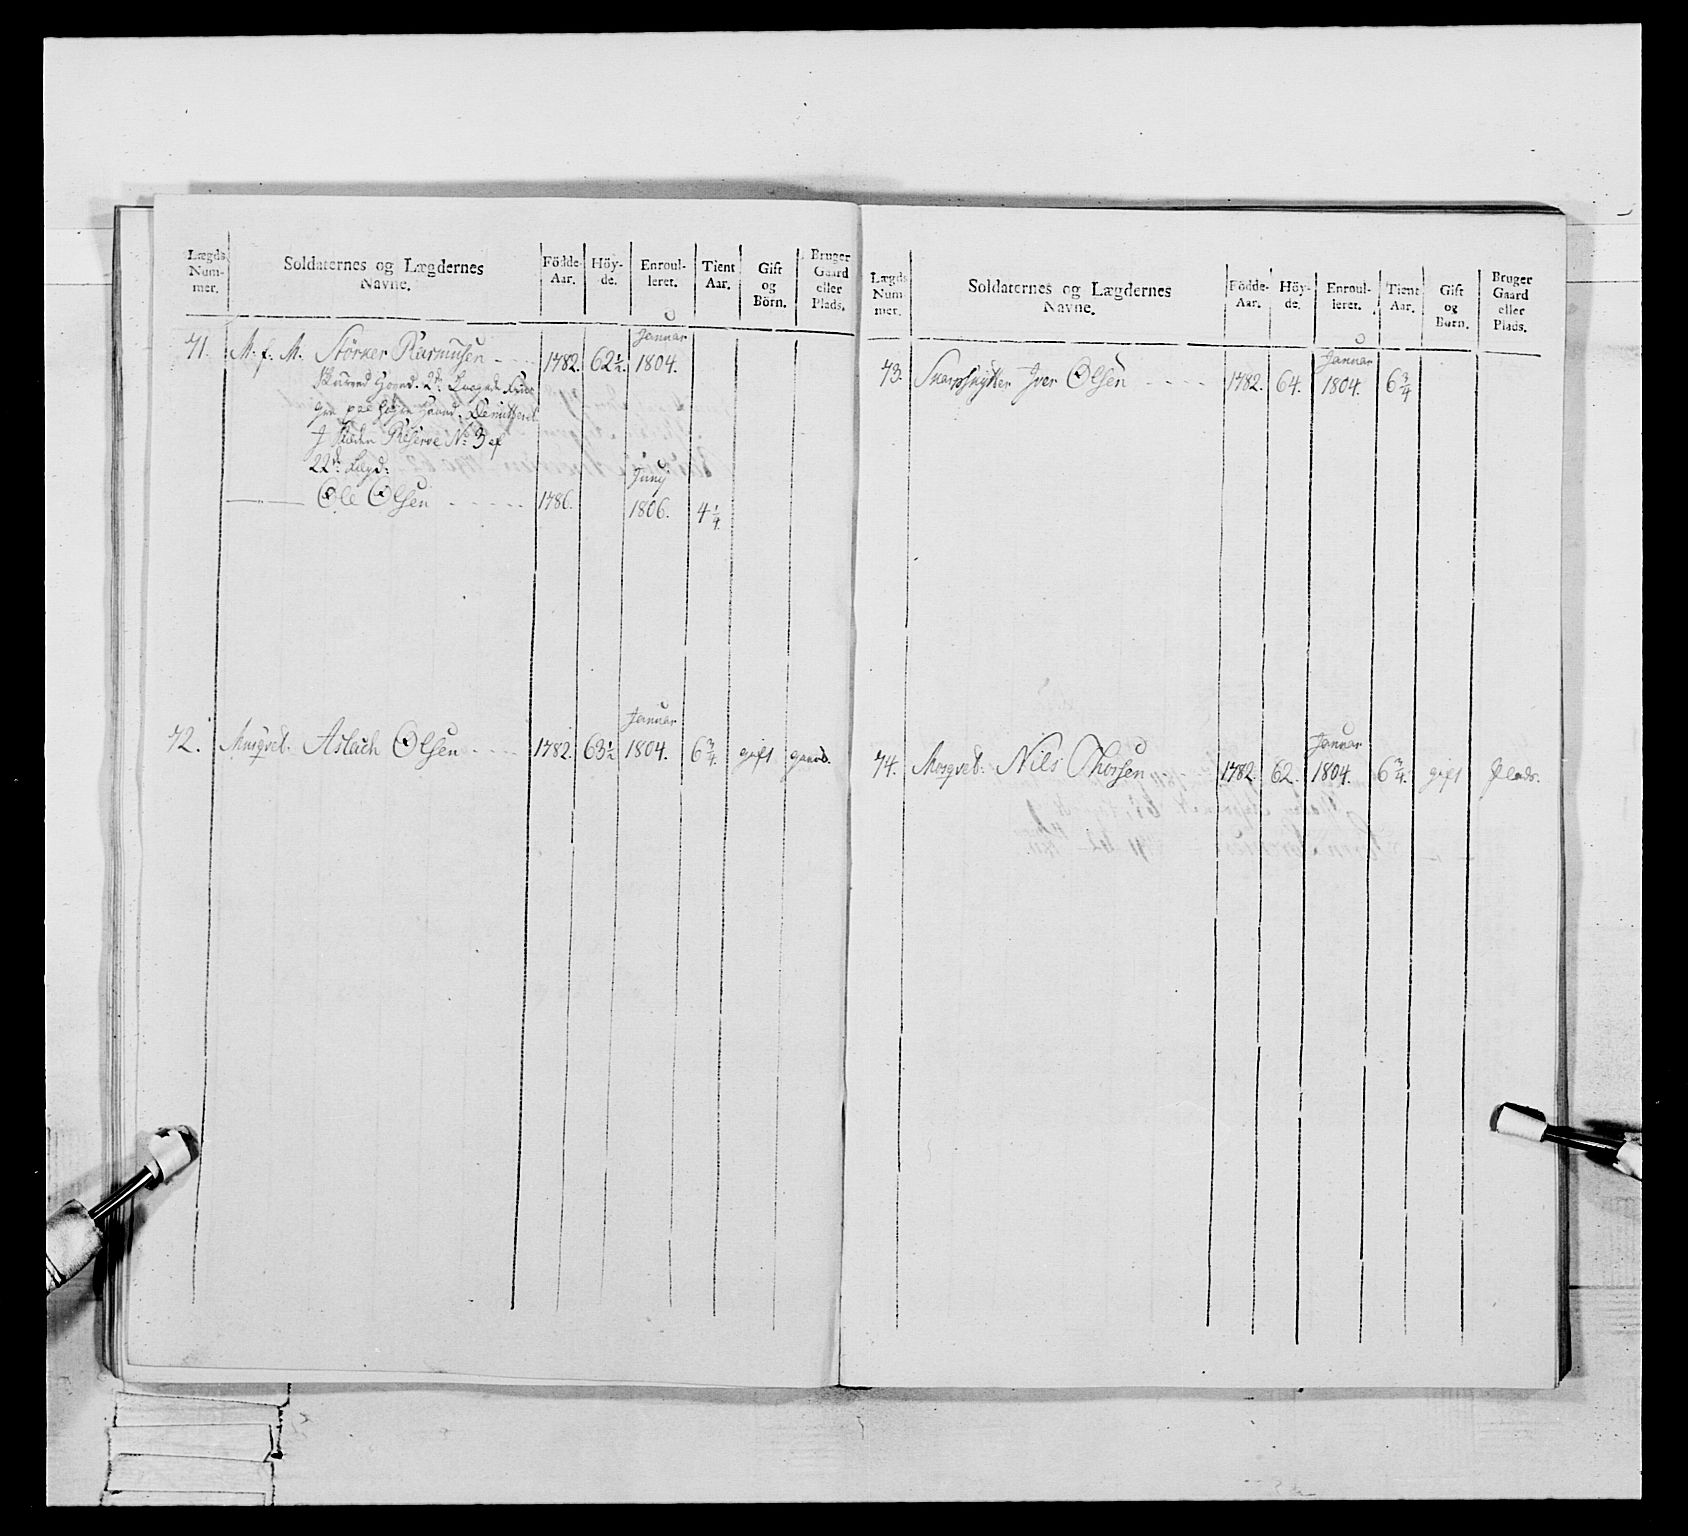 Lægds Num- mer.
Soldaternes og Lægdernes Navne.
Födde- Aar.
Höy- de.
Enroul- leret.
Tient Aar.
Gift og Börn.
Bruger Gaard eller Plads.
71. M. f. M. Störker Rasmusen 1782. 62½. Januar 1804.
2de
gen Haand.
Reserve No 3 af
22de Lægd:
Ole Olsen 1786. Junij 1806. 4¼.
72. Musqvet. Aslach Olsen 1782. 63½ Januar 1804. 6¾. gift gaard.
Lægds Num- mer.
Soldaternes og Lægdernes Navne.
Födde- Aar.
Höy- de.
Enroul- leret.
Tient Aar.
Gift og Börn.
Bruger Gaard eller Plads.
73. Skarpskytter Iver Olsen 1782. 64. Januar 1804. 6¾
74. Musqvet. Nils Thorsen 1782. 62. Januar 1804. 6¾. gift Plads.